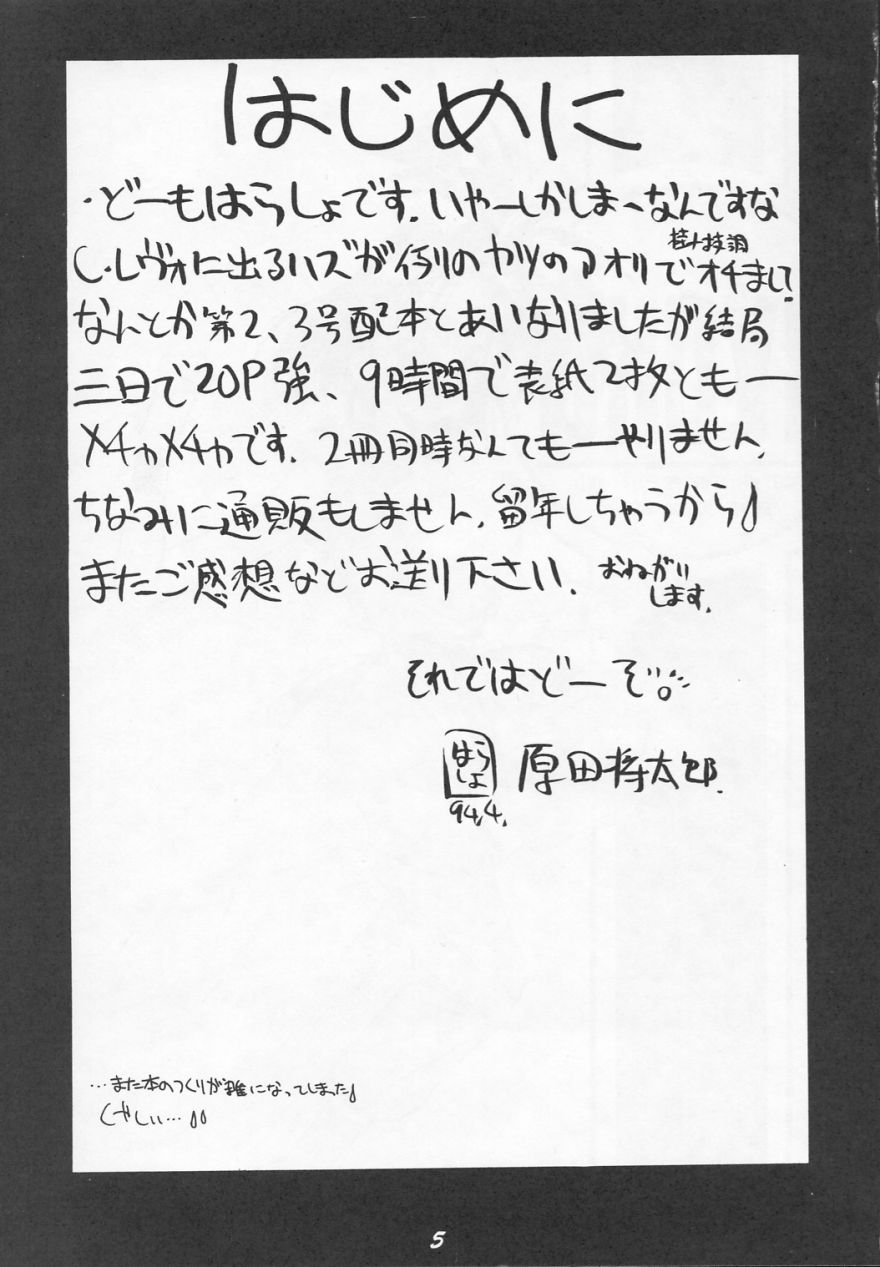 はじめに
・どーもはらしょです. いやーしかしま〜なんですな
C・レヴォに出るハズが例のヤツのアオリでオチまして.
なんとか第2、3号配本とあいなりましたが結局
三日で20P強、9時間で表紙2枚ともー
メチャメチャです. 2冊同時なんてもーやりません.
ちなみに通販もしません. 留年しちゃうから♪
またご感想などお送り下さい. おねがい
します.
それではどーぞ
はらしょ 原田将太郎.
94,4.
…また本のつくりが雑になってしまった♪
くやしい…♪♪
5